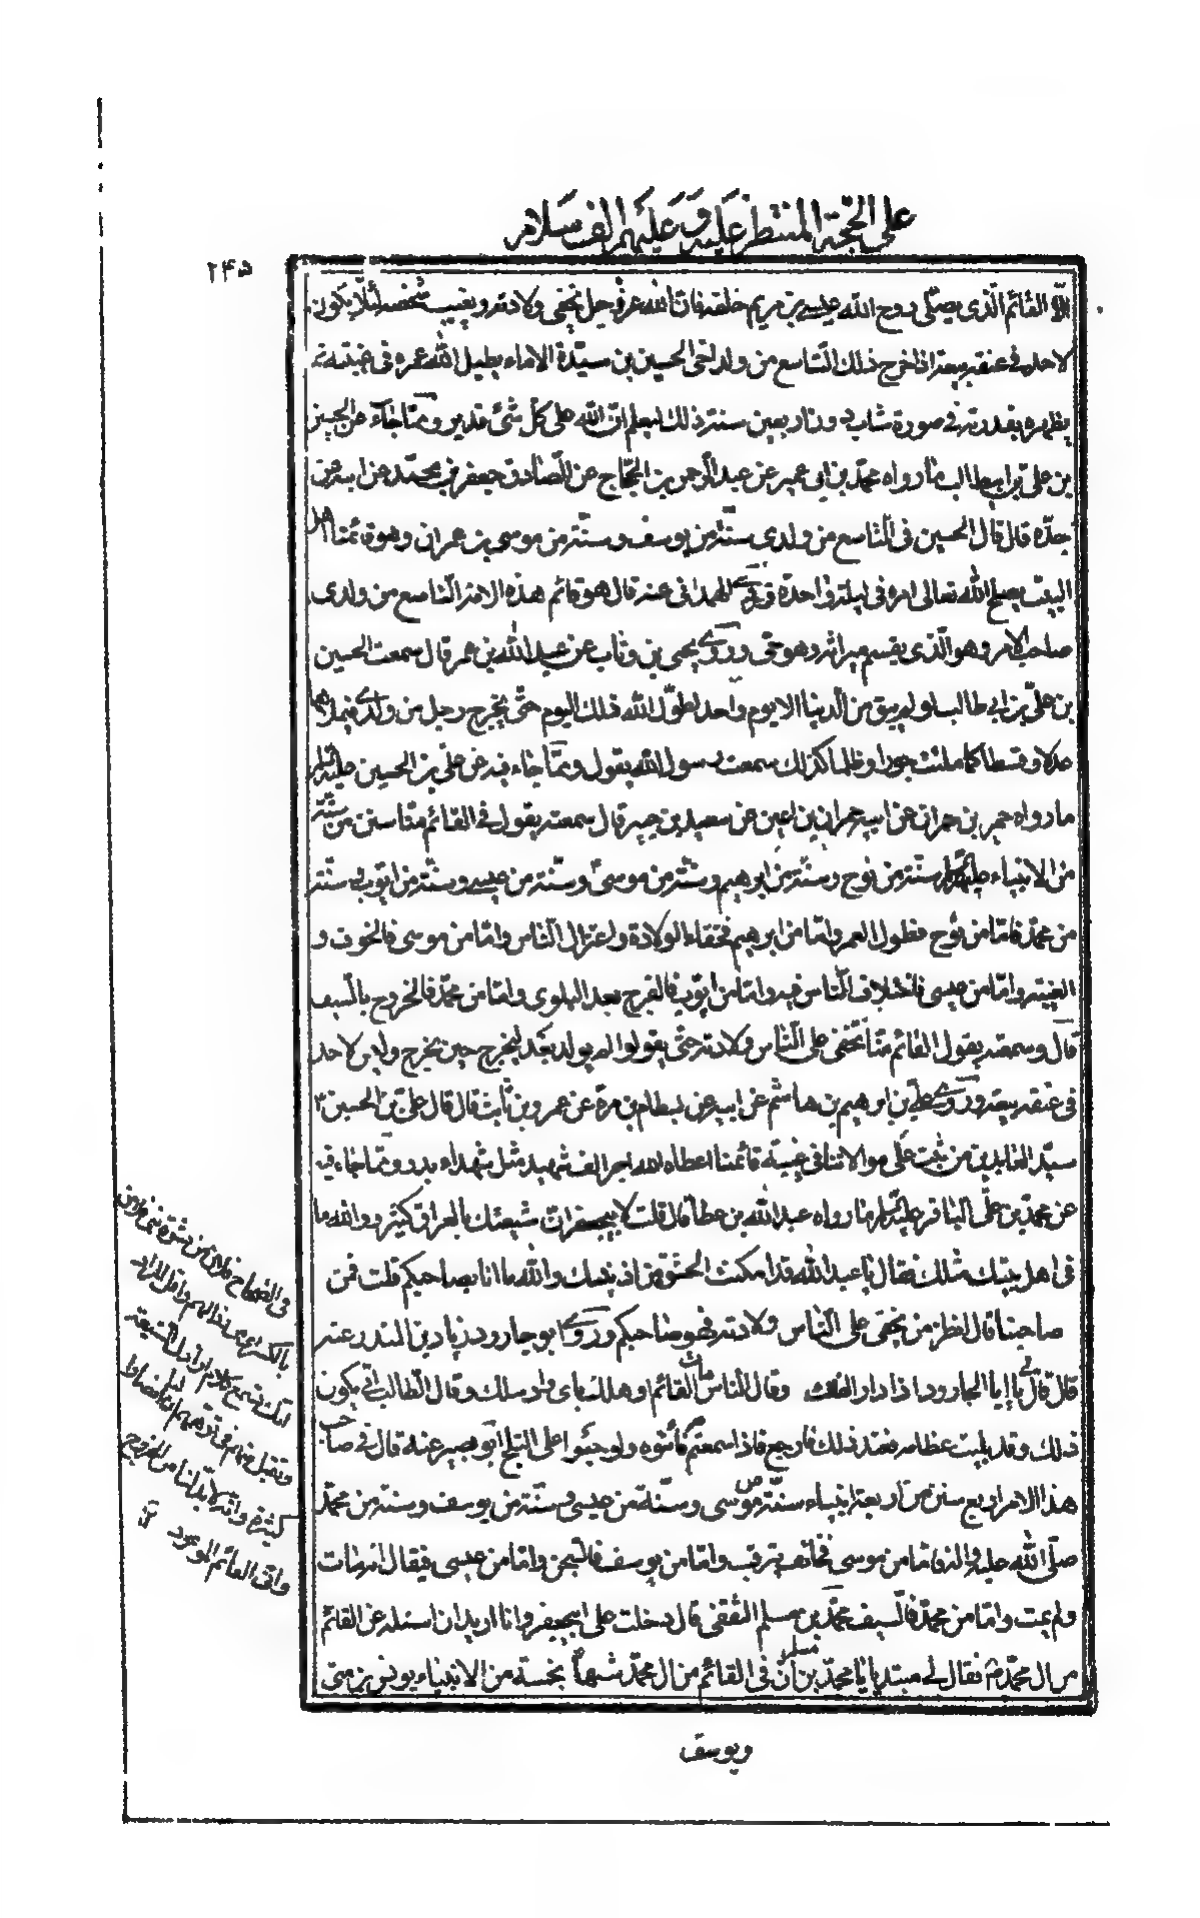 على الحجة المنتظر عليه وعليهم الف سلام
٢۴۵
الا القائم الذى يصلى روح الله عيسى بن مريم خلفه فان الله عز وجل يخفى ولادته ويغيب شخصه لئلا يكون
لاحد فى عنقه بيعة اذا خرج ذلك التاسع من ولد اخى الحسين بن سيدة الاماء يطيل الله عمره فى غيبته ثم
يظهره بقدرته فى صورة شاب دون اربعين سنة ذلك ليعلم ان الله على كل شئ قدير ومما جاء عن الحسين
بن على بن ابيطالب مارواه محمد بن ابى عمير عن عبد الرحمن بن الحجاج عن الصادق جعفر بن محمد عن ابيه عن
جده قال قال الحسين فى التاسع من ولدى سنة من يوسف وسنة من موسى بن عمران وهو قائمنا اهل
البيت يصلح الله تعالى امره فى ليلة واحدة وروى الهمدانى عنه قال هو قائم هذه الامة التاسع من ولدى
صاحب الامر وهو الذى يقسم ميراثه وهو حى وروى يحيى بن وثاب عن عبد الله بن عمر قال سمعت الحسين
بن على بن ابى طالب لو لم يبق من الدنيا الا يوم واحد لطول الله ذلك اليوم حتى يخرج رجل من ولدى فيملأها
عدلا وقسطا كما ملئت جورا وظلما كذلك سمعت رسول الله يقول ومما جاء فيه عن على بن الحسين عليه السلام
مارواه حمزة بن حمران عن ابيه حمران بن اعين عن سعيد بن جبير قال سمعته يقول فى القائم منا سنن من سنة
من الانبياء عليهم السلام سنة من نوح وسنة من ابرهيم وسنة من موسى وسنة من عيسى وسنة من ايوب وسنة
من محمد فاما من نوح فطول العمر واما من ابرهيم فخفاء الولادة واعتزال الناس واما من موسى فالخوف و
الغيبة واما من عيسى فاختلاف الناس فيه واما من ايوب فالفرج بعد البلوى واما من محمد فالخروج بالسيف
قال وسمعته يقول القائم منا تخفى على الناس ولادته حتى يقولوا لم يولد بعد ليخرج حين يخرج وليس لاحد
فى عنقه بيعة وروى على بن ابرهيم بن هاشم عن ابيه عن بسطام بن مرة عن عمرو بن ثابت قال قال على بن الحسين
سيد العابدين من ثبت على موالاتنا فى غيبة قائمنا اعطاه الله اجر الف شهيد مثل شهداء بدر ومما جاء فيه
عن محمد بن على الباقر عليه السلام مارواه عبد الله بن عطا قال قلت لابيجعفر ان شيعتك بالعراق كثيرة والله ما
فى اهل بيتك مثلك فقال يا عبد الله قد امكنت الحشوة من اذنيك والله ما انا بصاحبكم قلت فمن
صاحبنا قال انظر من تخفى على الناس ولادته فهو صاحبكم وروى ابو جارود زياد بن المنذر عنه
قال قال لى يا ابا الجارود اذا دار الفلك وقال الناس مات القائم او هلك باى واد سلك وقال الطالب انى يكون
ذلك وقد بليت عظامه فعند ذلك فارجع فاذا سمعتم به فأتوه ولو حبوا على الثلج ابو بصير عنه قال فى صاحب
هذا الامر اربع سنن من اربعة انبياء سنة من موسى وسنة من عيسى وسنة من يوسف وسنة من محمد
صلى الله عليه واله فاما من موسى فخائف يترقب واما من يوسف فالسجن واما من عيسى فيقال انه مات
ولم يمت واما من محمد فالسيف محمد بن مسلم الثقفى قال دخلت على ابيجعفر وانا اريد ان اسئله عن القائم
من ال محمد فقال لى مبتديا يا محمد بن مسلم ان فى القائم من ال محمد شبها بخمسة من الانبياء يونس بن متى
ويوسف
فى الصحاح فلان من حشوة بنى فلان
بالكسر اى من رذالهم
انك تسمع كلام اراذل الشيعة
وتقبل منهم فى توهمهم
كثيرة وانه لابد لنا من الخروج
وانى القائم الموعود